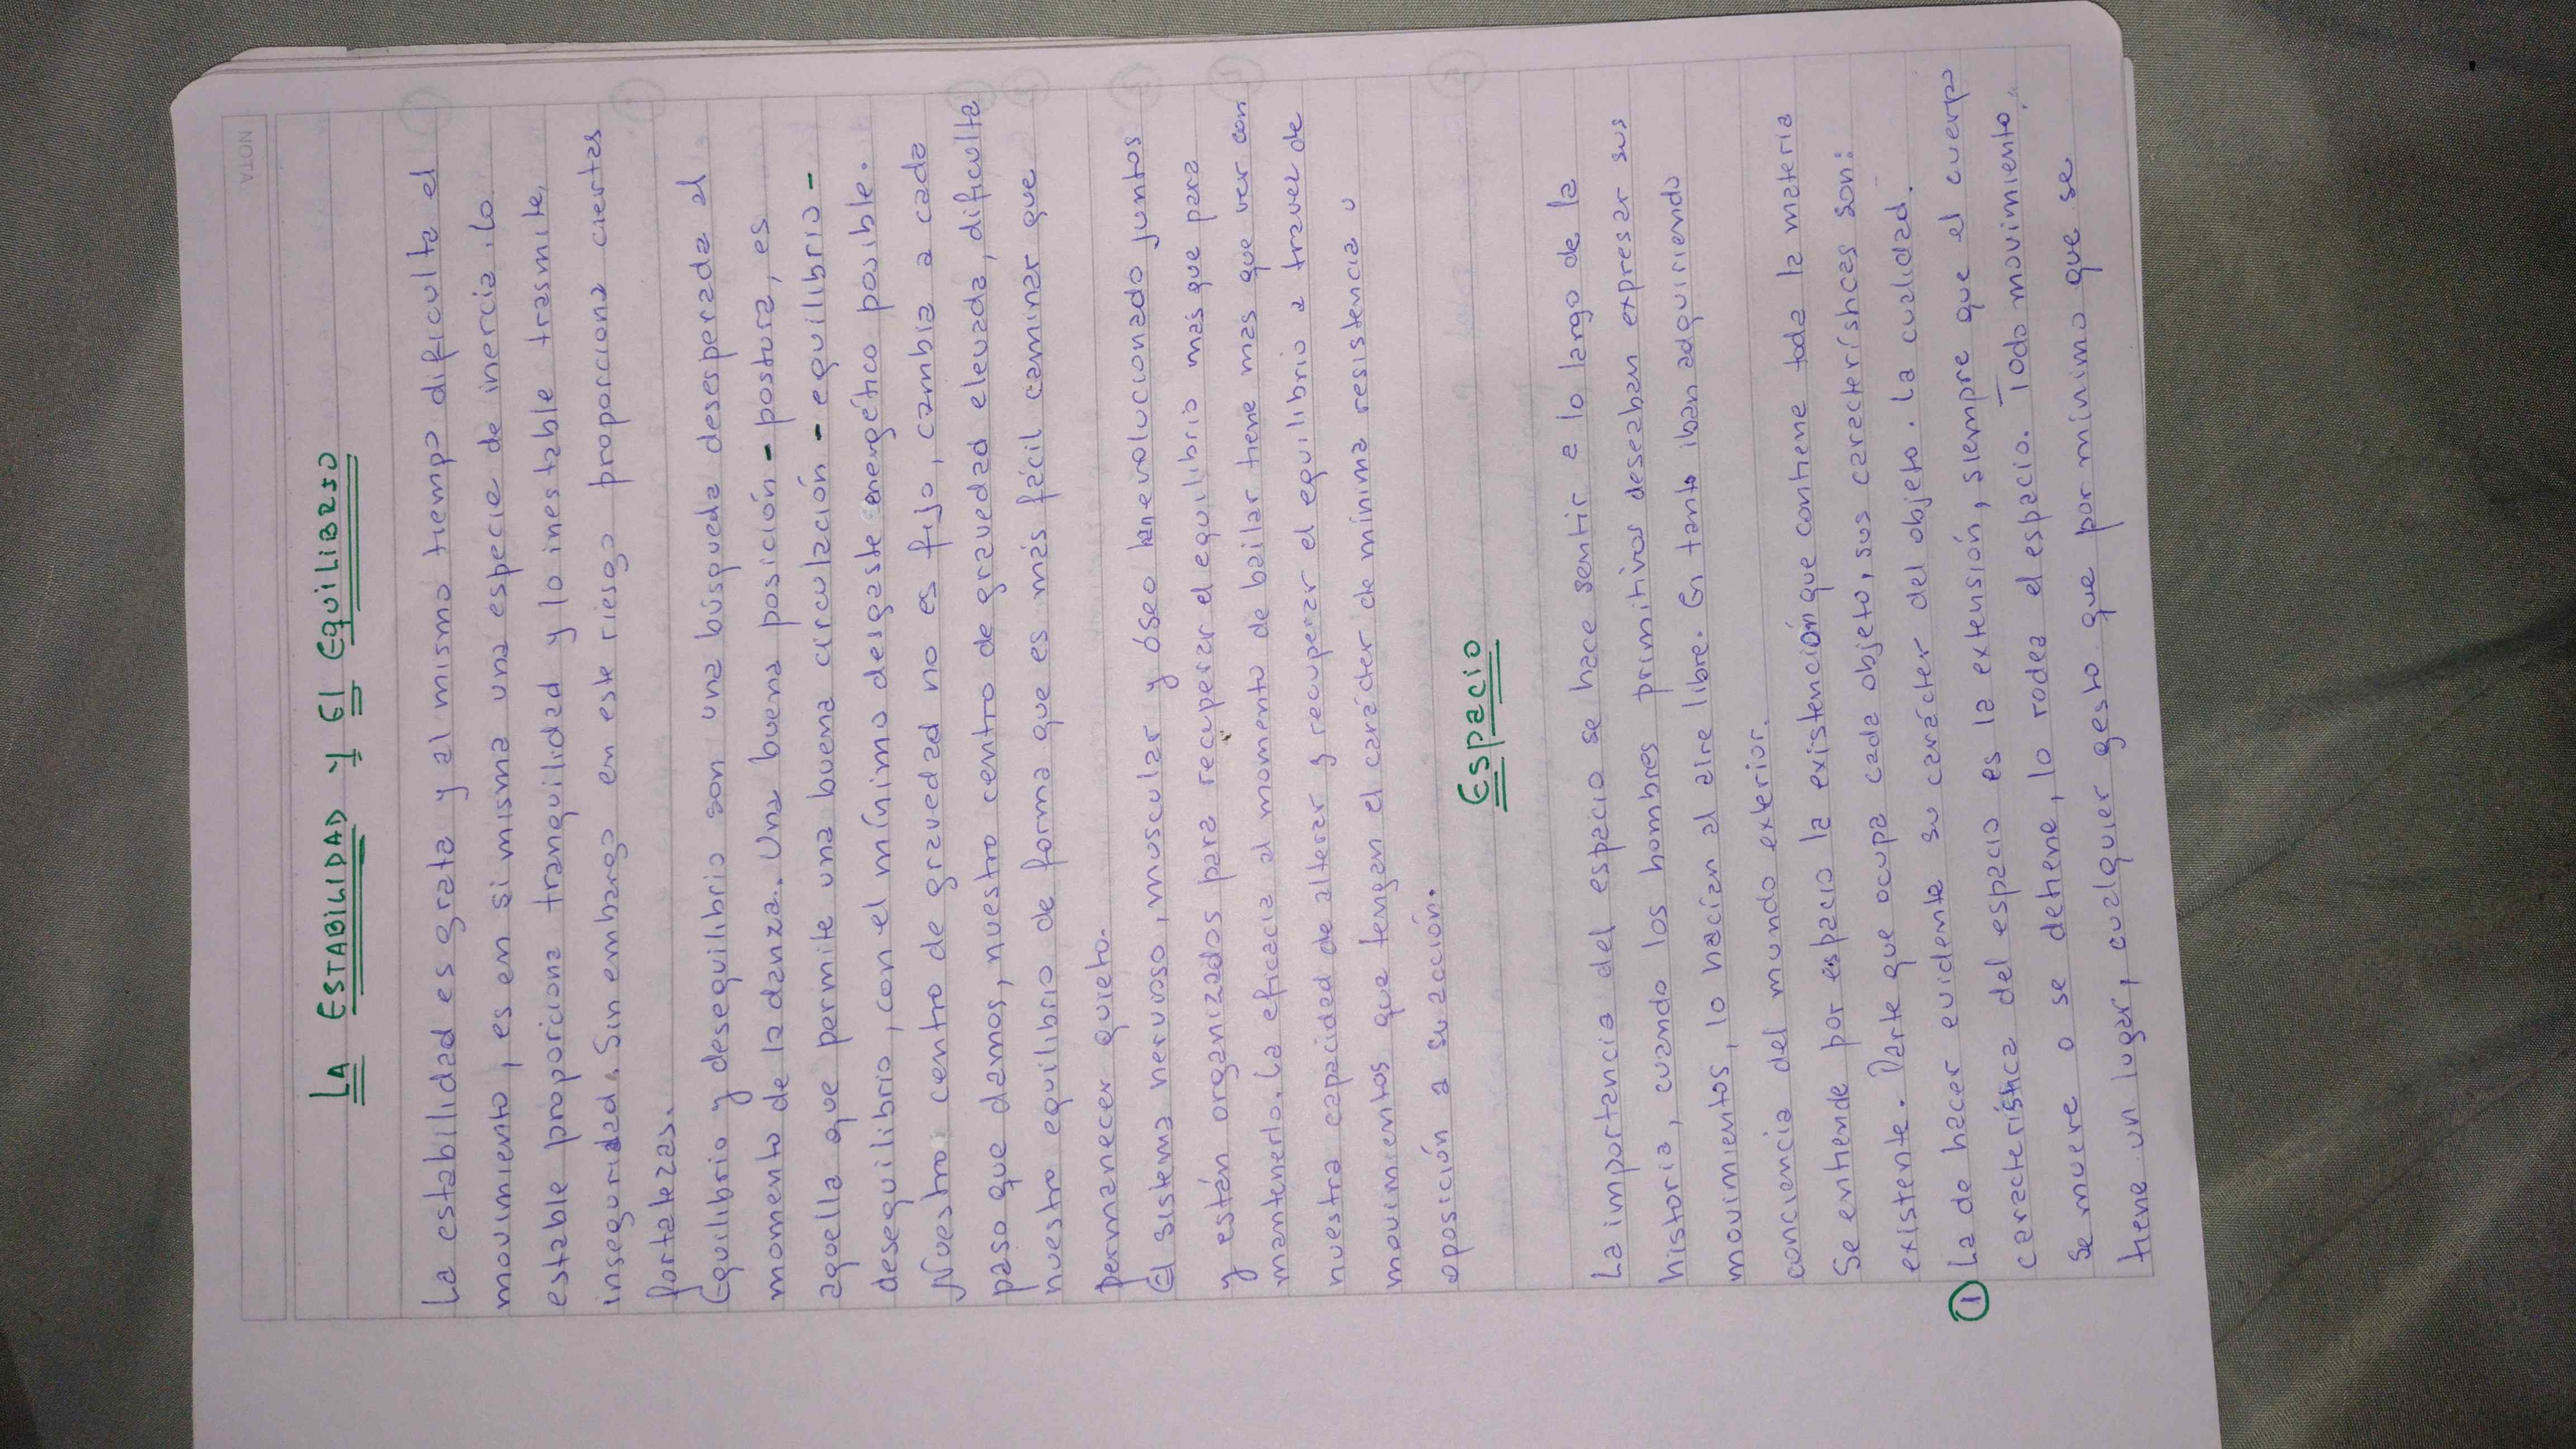 NOTA
LA ESTABILIDAD Y El EQUILIBRIO
La estabilidad es grata y al mismo tiempo dificulta el
movimiento, es en si misma una especie de inercia, lo
estable proporiciona tranquilidad y lo inestable trasmite,
inseguridad. Sin embargo en este riesgo proporciona ciertas
fortalezas.
Equilibrio y desequilibrio son una búsqueda desesperada al
momento de la danza. Una buena posición - postura, es
aquella que permite una buena circulación - equilibrio -
desequilibrio, con el mínimo desgaste energético posible.
Nuestro centro de gravedad no es fijo, cambia a cada
paso que damos, nuestro centro de gravedad elevada, dificulta
nuestro equilibrio de forma que es más fácil caminar que
permanecer quieto.
El sistema nervioso, muscular y óseo han evolucionado juntos
y están organizados para recuperar el equilibrio más que para
mantenerlo. La eficacia al momento de bailar tiene mas que ver con
nuestra capacidad de alterar y recuperar el equilibrio a travez de
movimientos que tengan el carácter de mínima resistencia u
oposición a su acción.
Espacio
La importancia del espacio se hace sentir a lo largo de la
historia, cuando los hombres primitivos deseaban expresar sus
movimientos, lo hacían al aire libre. En tanto iban adquiriendo
conciencia del mundo exterior.
Se entiende por espacio la existención que contiene toda la materia
existente. Parte que ocupa cada objeto, sus caracteríshcas son:
① La de hacer evidente su carácter del objeto. La cualidad.
característica del espacio es la extensión, siempre que el cuerpo
se mueve o se detiene, lo rodea el espacio. Todo movimiento,
tiene un lugar, cualquier gesto que por mínimo que se